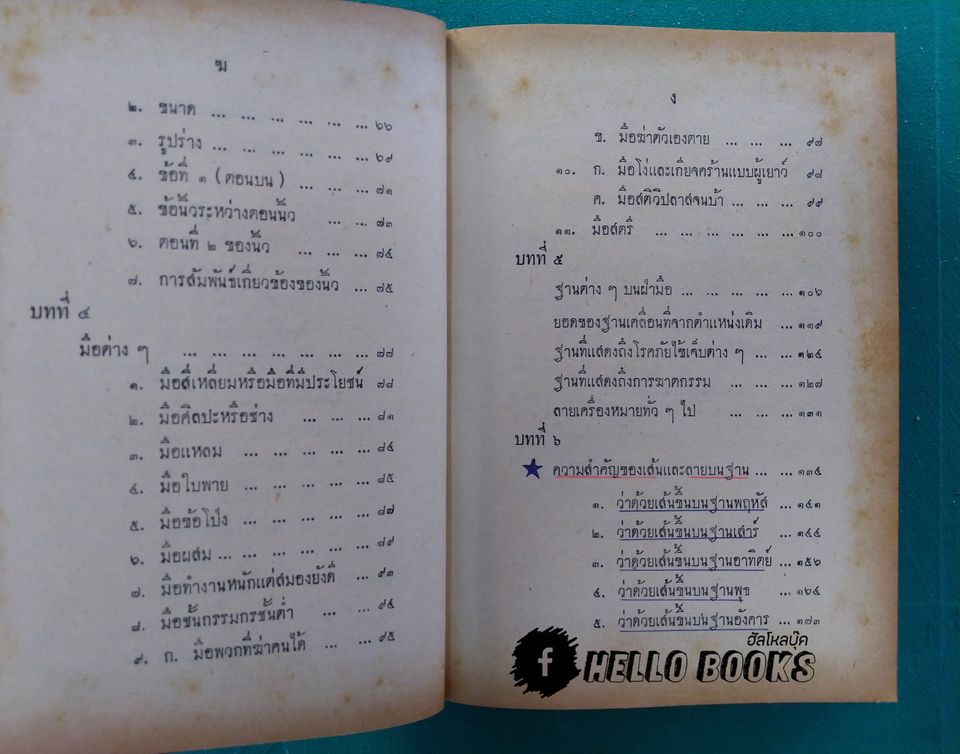 ฆ
๒. ขนาด ... ... ... ... ... ... ๖๖
๓. รูปร่าง ... ... ... ... ... ... ๖๙
๔. ข้อที่ ๑ (ตอนบน) ... ... ... ๗๑
๕. ข้อนิ้วระหว่างตอนนิ้ว ... ... ๗๓
๖. ตอนที่ ๒ ของนิ้ว ... ... ... ๗๔
๗. การสัมพันธ์เกี่ยวข้องของนิ้ว ... ๗๕
บทที่ ๔
มือต่าง ๆ ... ... ... ... ... ... ... ๗๗
๑. มือสี่เหลี่ยมหรือมือที่มีประโยชน์ ๗๘
๒. มือศิลปะหรือช่าง ... ... ... ๘๑
๓. มือแหลม ... ... ... ... ... ๘๔
๔. มือใบพาย ... ... ... ... ... ๘๕
๕. มือข้อโป่ง ... ... ... ... ... ๘๗
๖. มือผสม ... ... ... ... ... ... ๘๙
๗. มือทำงานหนักแต่สมองยังดี ... ๙๓
๘. มือชั้นกรรมกรชั้นต่ำ ... ... ๙๔
๙. ก. มือพวกที่ฆ่าคนได้ ... ... ๙๕
ง
ข. มือฆ่าตัวเองตาย ... ... ... ๙๗
๑๐. ก. มือโง่และเกียจคร้านแบบผู้เยาว์ ๙๘
ค. มือสติวิปลาสจนบ้า ... ... ... ๙๙
๑๑. มือสตรี ... ... ... ... ... ... ๑๐๐
บทที่ ๕
ฐานต่าง ๆ บนฝ่ามือ ... ... ... ... ... ๑๐๖
ยอดของฐานเคลื่อนที่จากตำแหน่งเดิม ... ๑๑๙
ฐานที่แสดงถึงโรคภัยไข้เจ็บต่าง ๆ ... ... ๑๒๔
ฐานที่แสดงถึงการฆาตกรรม ... ... ... ๑๒๗
ลายเครื่องหมายทั่ว ๆ ไป ... ... ... ๑๓๑
บทที่ ๖
ความสำคัญของเส้นและลายบนฐาน ... ... ๑๓๔
๑. ว่าด้วยเส้นขึ้นบนฐานพฤหัส ... ๑๔๑
๒. ว่าด้วยเส้นขึ้นบนฐานเสาร์ ... ๑๔๔
๓. ว่าด้วยเส้นขึ้นบนฐานอาทิตย์ ... ๑๕๖
๔. ว่าด้วยเส้นขึ้นบนฐานพุธ ... ๑๖๔
๕. ว่าด้วยเส้นขึ้นบนฐานอังคาร ... ๑๗๓
ฮัลโหลบุ๊ค
f HELLO BOOKS